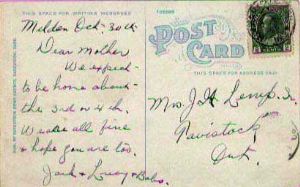 THIS SPACE FOR WRITING MESSAGES
Meldon Oct. 30th
Dear Mother
We expect
to be home about
the 3rd or 4th.
We are all fine
& hope you are too.
Jack & Lucy & Babs.
POST
CARD
THIS SPACE FOR ADDRESS ONLY
Mrs. J. H. Kemp. Sr.
Tavistock
Ont.